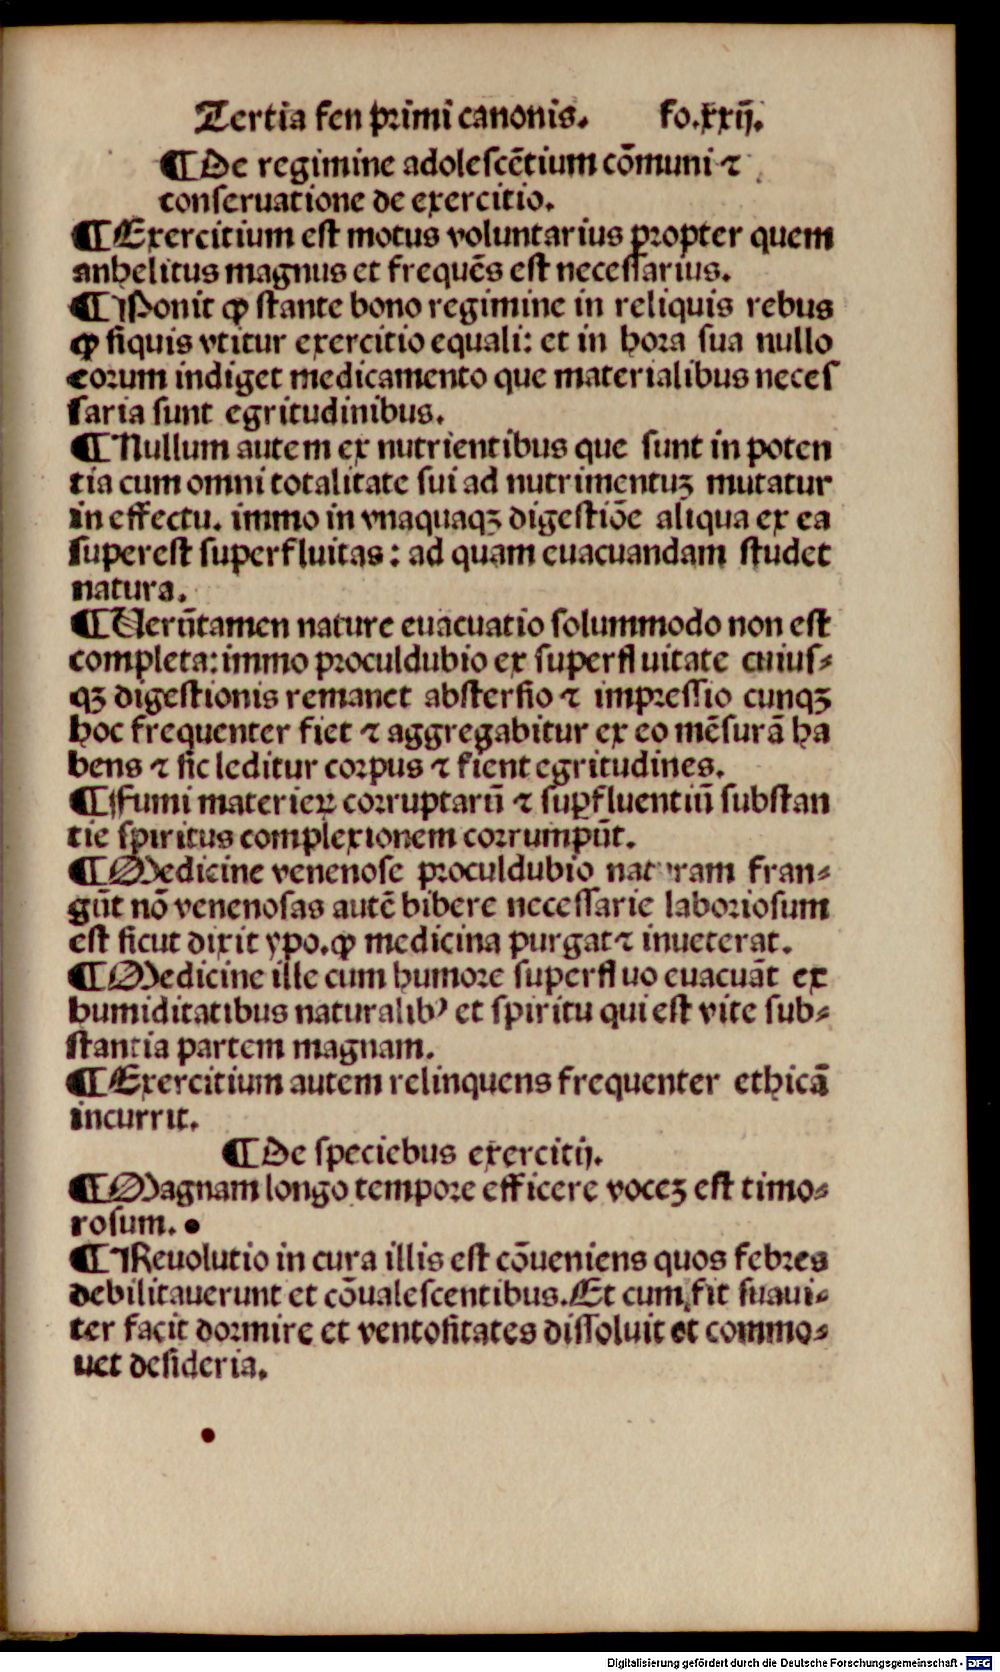 Tertia fen primi canonis. fo.xxij.
¶De regimine adolescẽtium cõmuni ⁊
conseruatione de exercitio.
¶Exercitium est motus voluntarius propter quem
anhelitus magnus et frequẽs est necessarius.
¶Ponit ꝙ stante bono regimine in reliquis rebus
ꝙ siquis vtitur exercitio equali: et in hora sua nullo
eorum indiget medicamento que materialibus neces
saria sunt egritudinibus.
¶Nullum autem ex nutrientibus que sunt in poten
tia cum omni totalitate sui ad nutrimentuꝫ mutatur
in effectu. immo in vnaquaqꝫ digestiõe aliqua ex ea
superest superfluitas: ad quam euacuandam studet
natura.
¶Uerũtamen nature euacuatio solummodo non est
completa: immo proculdubio ex superfluitate cuius⸗
qꝫ digestionis remanet abstersio ⁊ impressio cunqꝫ
hoc frequenter fiet ⁊ aggregabitur ex eo mẽsurã ha
bens ⁊ sic leditur corpus ⁊ fient egritudines.
¶Fumi materieꝝ corruptarũ ⁊ suꝑfluentiũ substan
tie spiritus complexionem corrumpũt.
¶Medicine venenose proculdubio naturam fran⸗
gũt nõ venenosas autẽ bibere necessarie laboriosum
est sicut dixit ypo. ꝙ medicina purgat ⁊ inueterat.
¶Medicine ille cum humore superfluo euacuãt ex
humiditatibus naturalibꝰ et spiritu qui est vite sub⸗
stantia partem magnam.
¶Exercitium autem relinquens frequenter ethicã
incurrit.
¶De speciebus exercitij.
¶Magnam longo tempore efficere voceꝫ est timo⸗
rosum.
¶Reuolutio in cura illis est cõueniens quos febres
debilitauerunt et cõualescentibus. Et cum fit suaui⸗
ter facit dormire et ventositates dissoluit et commo⸗
uet desideria.
Digitalisierung gefördert durch die Deutsche Forschungsgemeinschaft - DFG